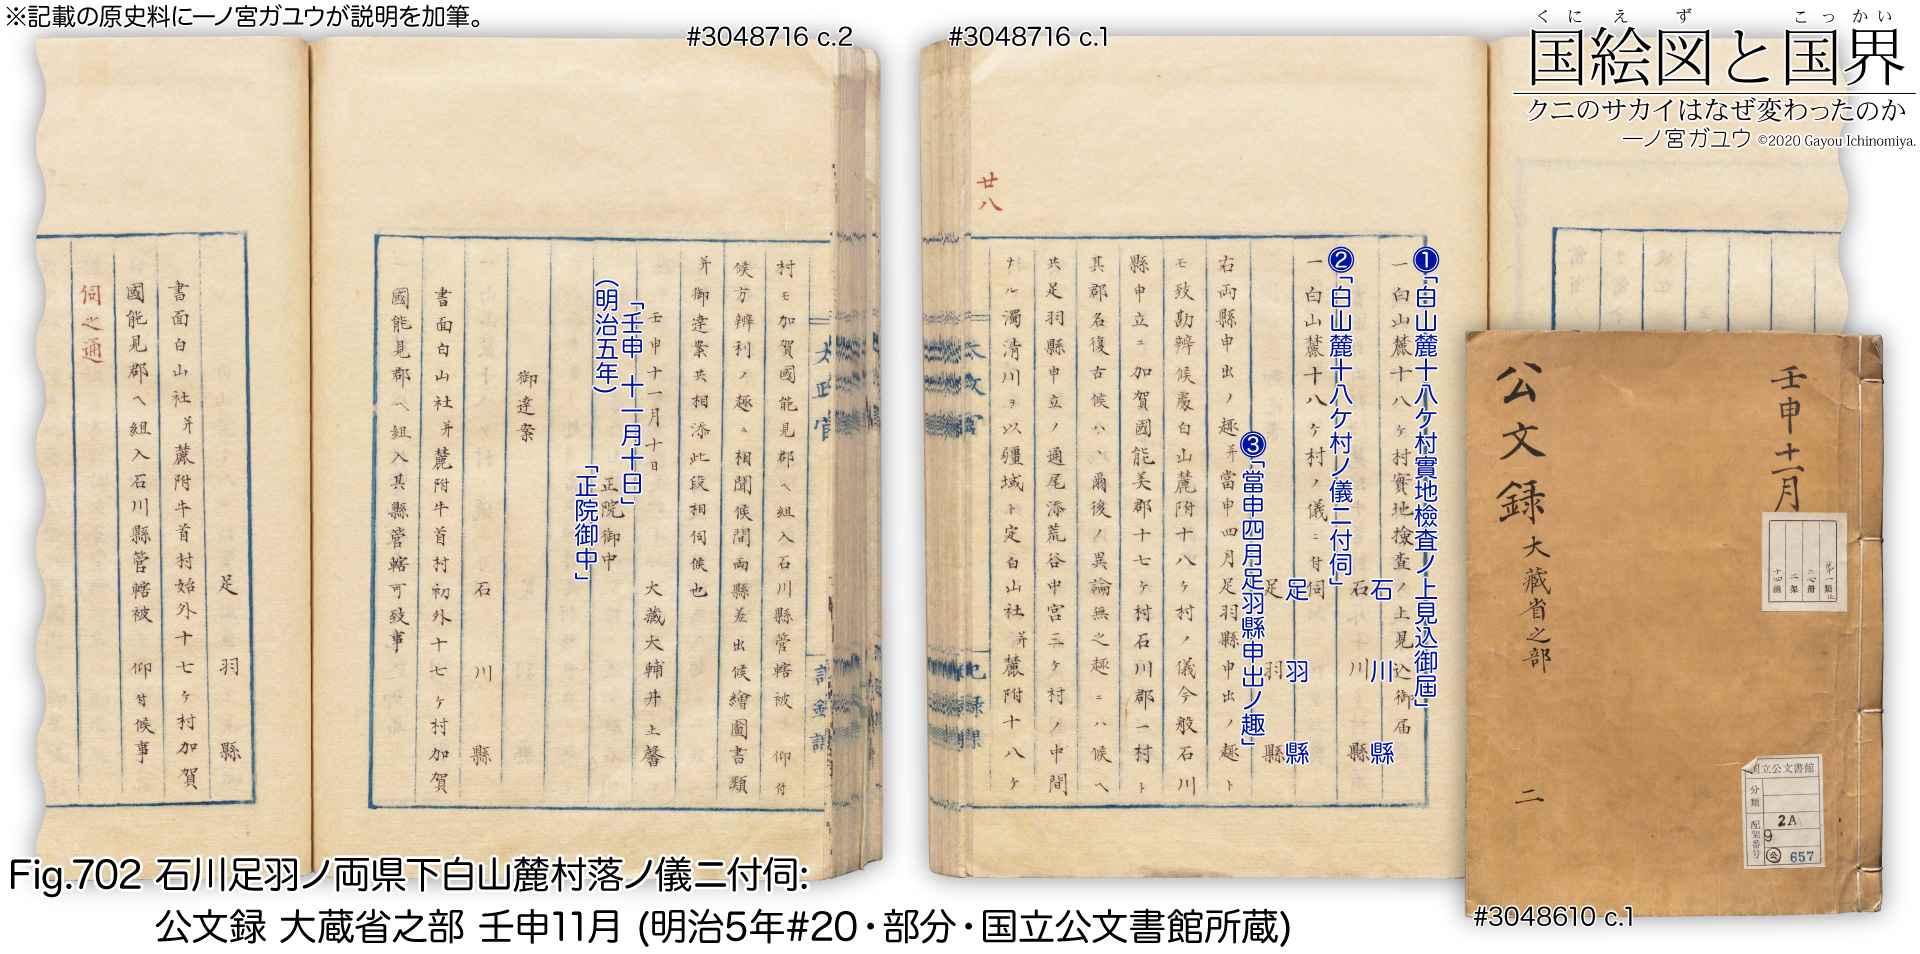 ※記載の原史料に一ノ宮ガユウが説明を加筆。
#3048716 c.2
#3048716 c.1
くにえず こっかい
国絵図と国界
クニのサカイはなぜ変わったのか
一ノ宮ガユウ ©2020 Gayou Ichinomiya.
廿八
❶「白山麓十八ケ村實地檢査ノ上見込御屆」
一白山麓十八ケ村實地檢査ノ上見込御届
石川縣
石川縣
❷「白山麓十八ケ村ノ儀ニ付伺」
一白山麓十八ケ村ノ儀ニ付伺
足羽縣
足羽縣
❸「當申四月足羽縣申出ノ趣」
右両縣申出ノ趣并當申四月足羽縣申出ノ趣ト
モ致勘辨候處白山麓附十八ケ村ノ儀今般石川
縣申立ニハ加賀國能美郡十七ケ村石川郡一村ト
其郡名復古候ハヽ爾後ノ異論無之趣ニハ候ヘ
共足羽縣申立ノ通尾添荒谷中宮三ケ村ノ中間
ナル濁清川ヲ以疆域ト定白山社并麓附十八ケ
太政官
記録課
太政官
記録課
村モ加賀國能見郡ヘ組入石川縣管轄被 仰付
候方辨利ノ趣ニ相聞候間両縣差出候繪圖書類
并御達案共相添此段相伺候也
壬申十一月十日 大藏大輔井上馨
「壬申 十一月十日」
(明治五年)
正院御中
「正院御中」
御達案
石川縣
書面白山社并麓附牛首村初外十七ケ村加賀
國能見郡ヘ組入其縣管轄可致事
足羽縣
書面白山社并麓附牛首村始外十七ケ村加賀
國能見郡ヘ組入石川縣管轄被 仰付候事
伺之通
壬申十一月
公文録 大藏省之部 二
第一類
二架
十四函
国立公文書館
分類
配架番号
2A
9
公
657
#3048610 c.1
Fig.702 石川足羽ノ両県下白山麓村落ノ儀ニ付伺:
公文録 大蔵省之部 壬申11月 (明治5年#20・部分・国立公文書館所蔵)